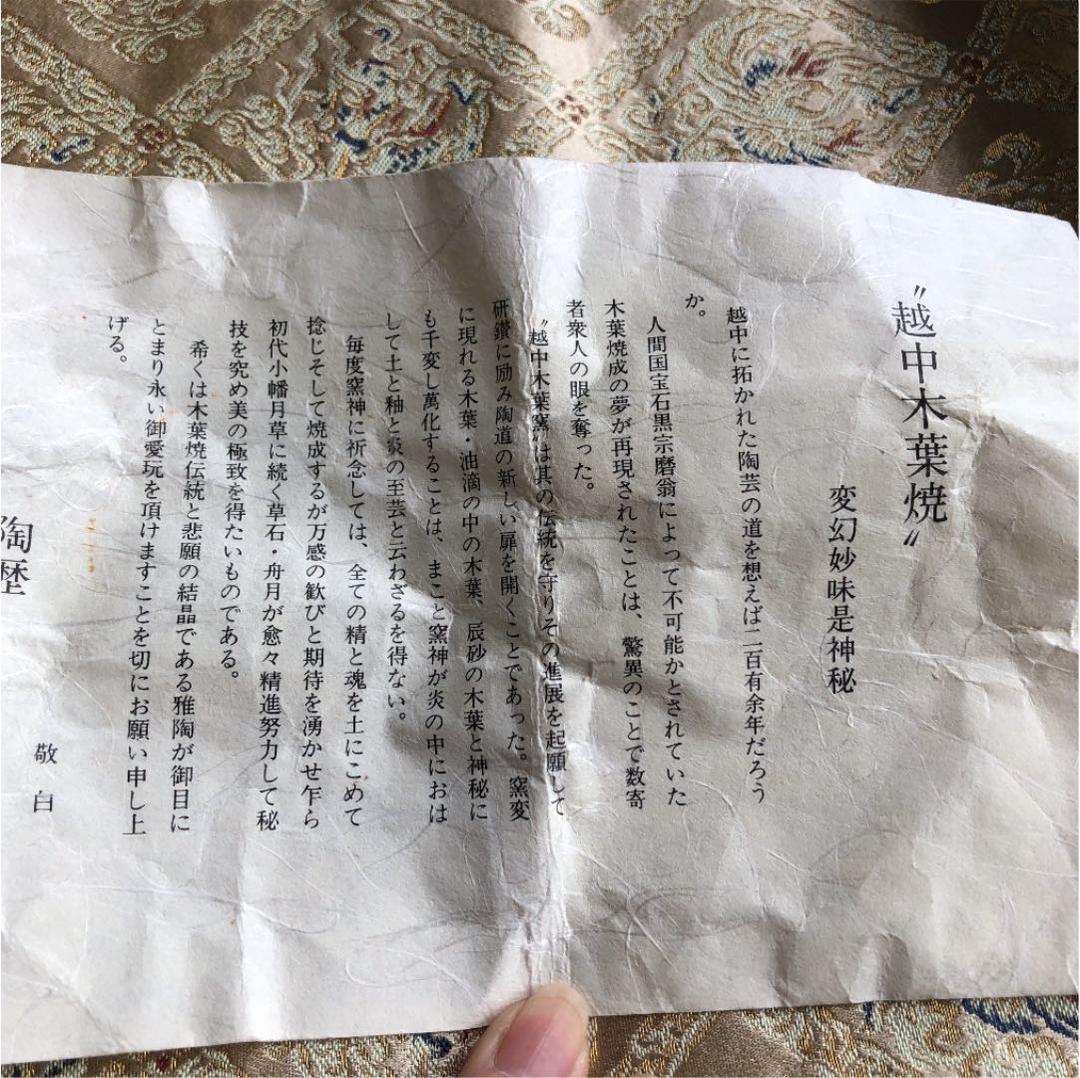 〝越中木葉焼〟
変幻妙味是神秘
越中に拓かれた陶芸の道を想えば二百有余年だろう
か。
人間国宝石黒宗磨翁によって不可能かとされていた
木葉焼成の夢が再現されたことは、驚異のことで数寄
者衆人の眼を奪った。
〝越中木葉窯〟は其の伝統を守りその進展を起願して
研鑽に励み陶道の新しい扉を開くことであった。窯変
に現れる木葉・油滴の中の木葉、辰砂の木葉と神秘に
も千変し萬化することは、まこと窯神が炎の中におは
して土と釉と炎の至芸と云わざるを得ない。
毎度窯神に祈念しては、全ての精と魂を土にこめて
捻じそして焼成するが万感の歓びと期待を湧かせ乍ら
初代小幡月草に続く草石・舟月が愈々精進努力して秘
技を究め美の極致を得たいものである。
希くは木葉焼伝統と悲願の結晶である雅陶が御目に
とまり永い御愛玩を頂けますことを切にお願い申し上
げる。
敬白
陶歴